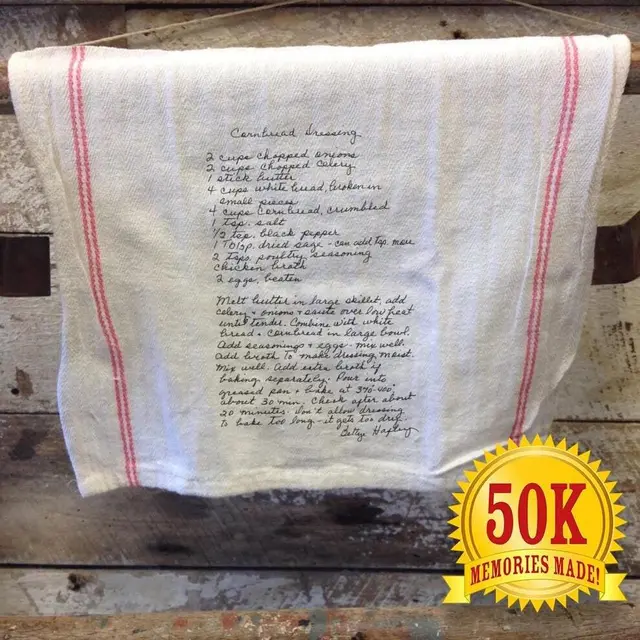 Cornbread Dressing
2 cups chopped onions
2 cups chopped celery
1 stick butter
4 cups white bread, broken in
small pieces
4 cups cornbread, crumbled
1 tsp. salt
1/2 tsp. black pepper
1 Tblsp. dried sage - can add tsp. more
2 tsps. poultry seasoning
chicken broth
2 eggs, beaten
Melt butter in large skillet, add
celery + onions + saute over low heat
until tender. Combine with white
bread + cornbread in large bowl.
Add seasonings + eggs - mix well.
Add broth to make dressing moist.
Mix well. Add extra broth if
baking separately. Pour into
greased pan + bake at 375-400°
about 30 min. Check after about
20 minutes. Don't allow dressing
to bake too long - it gets too dry.
- Betty
50K
MEMORIES MADE!